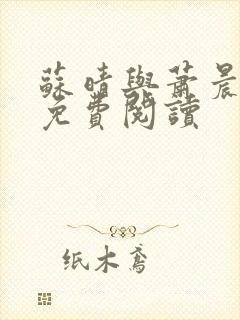 蘇晴與蕭晨
免費閱讀
纸木鸢